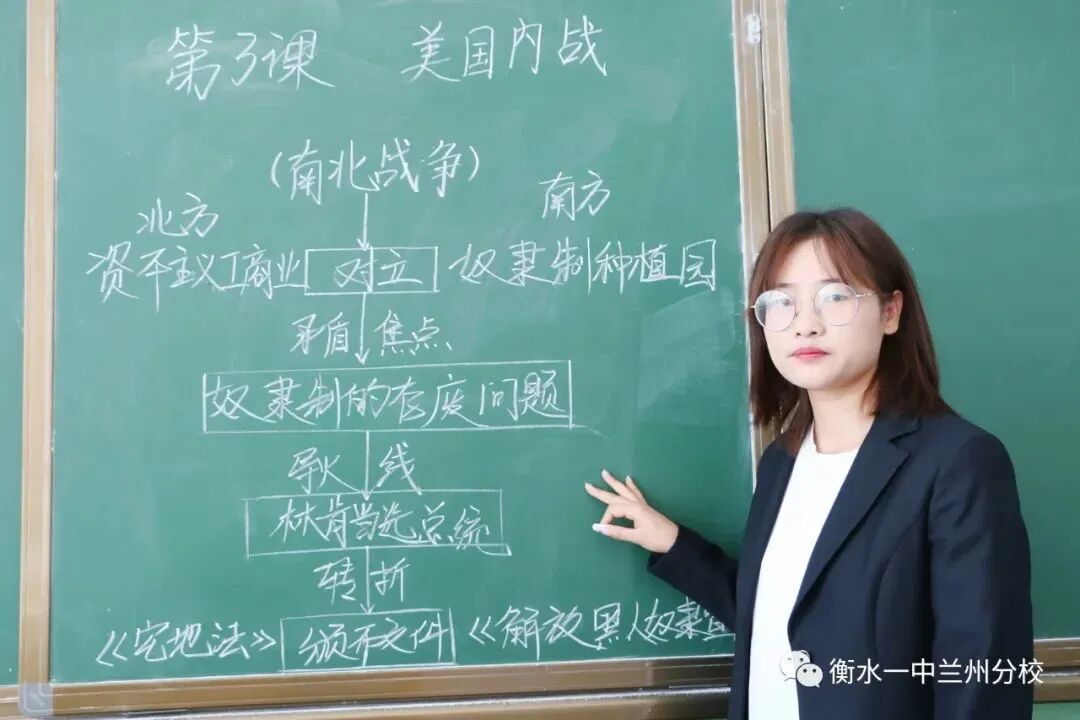 第3课 美国内战
(南北战争)
北方 南方
资本主义工商业 对立 奴隶制种植园
矛盾焦点
奴隶制的存废问题
导火线
林肯当选总统
转折
《宅地法》 颁布文件 《解放黑人奴隶宣
衡水一中兰州分校